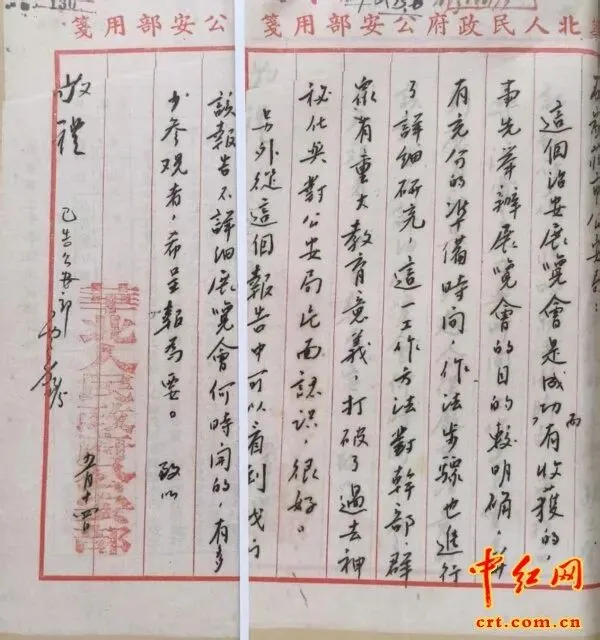 130
華北人民政府公安部用箋
公安部用箋
石家莊市公安局：
這個治安展覽會是成功而有收獲的，
事先举辦展覽會的目的較明确，並
有充分的準備時間，作法步驟也進行
了詳細研究，這一工作方法對幹部、群
眾有重大教育意義，打破了過去神
秘化與對公安局片面認識，很好。
另外從這個報告中可以看到
該報告不詳細展覽會何時開的，有多
少参观者，希呈報為要。 致以
敬禮
華北人民政府公安部
五月十四日
中红网
crt.com.cn